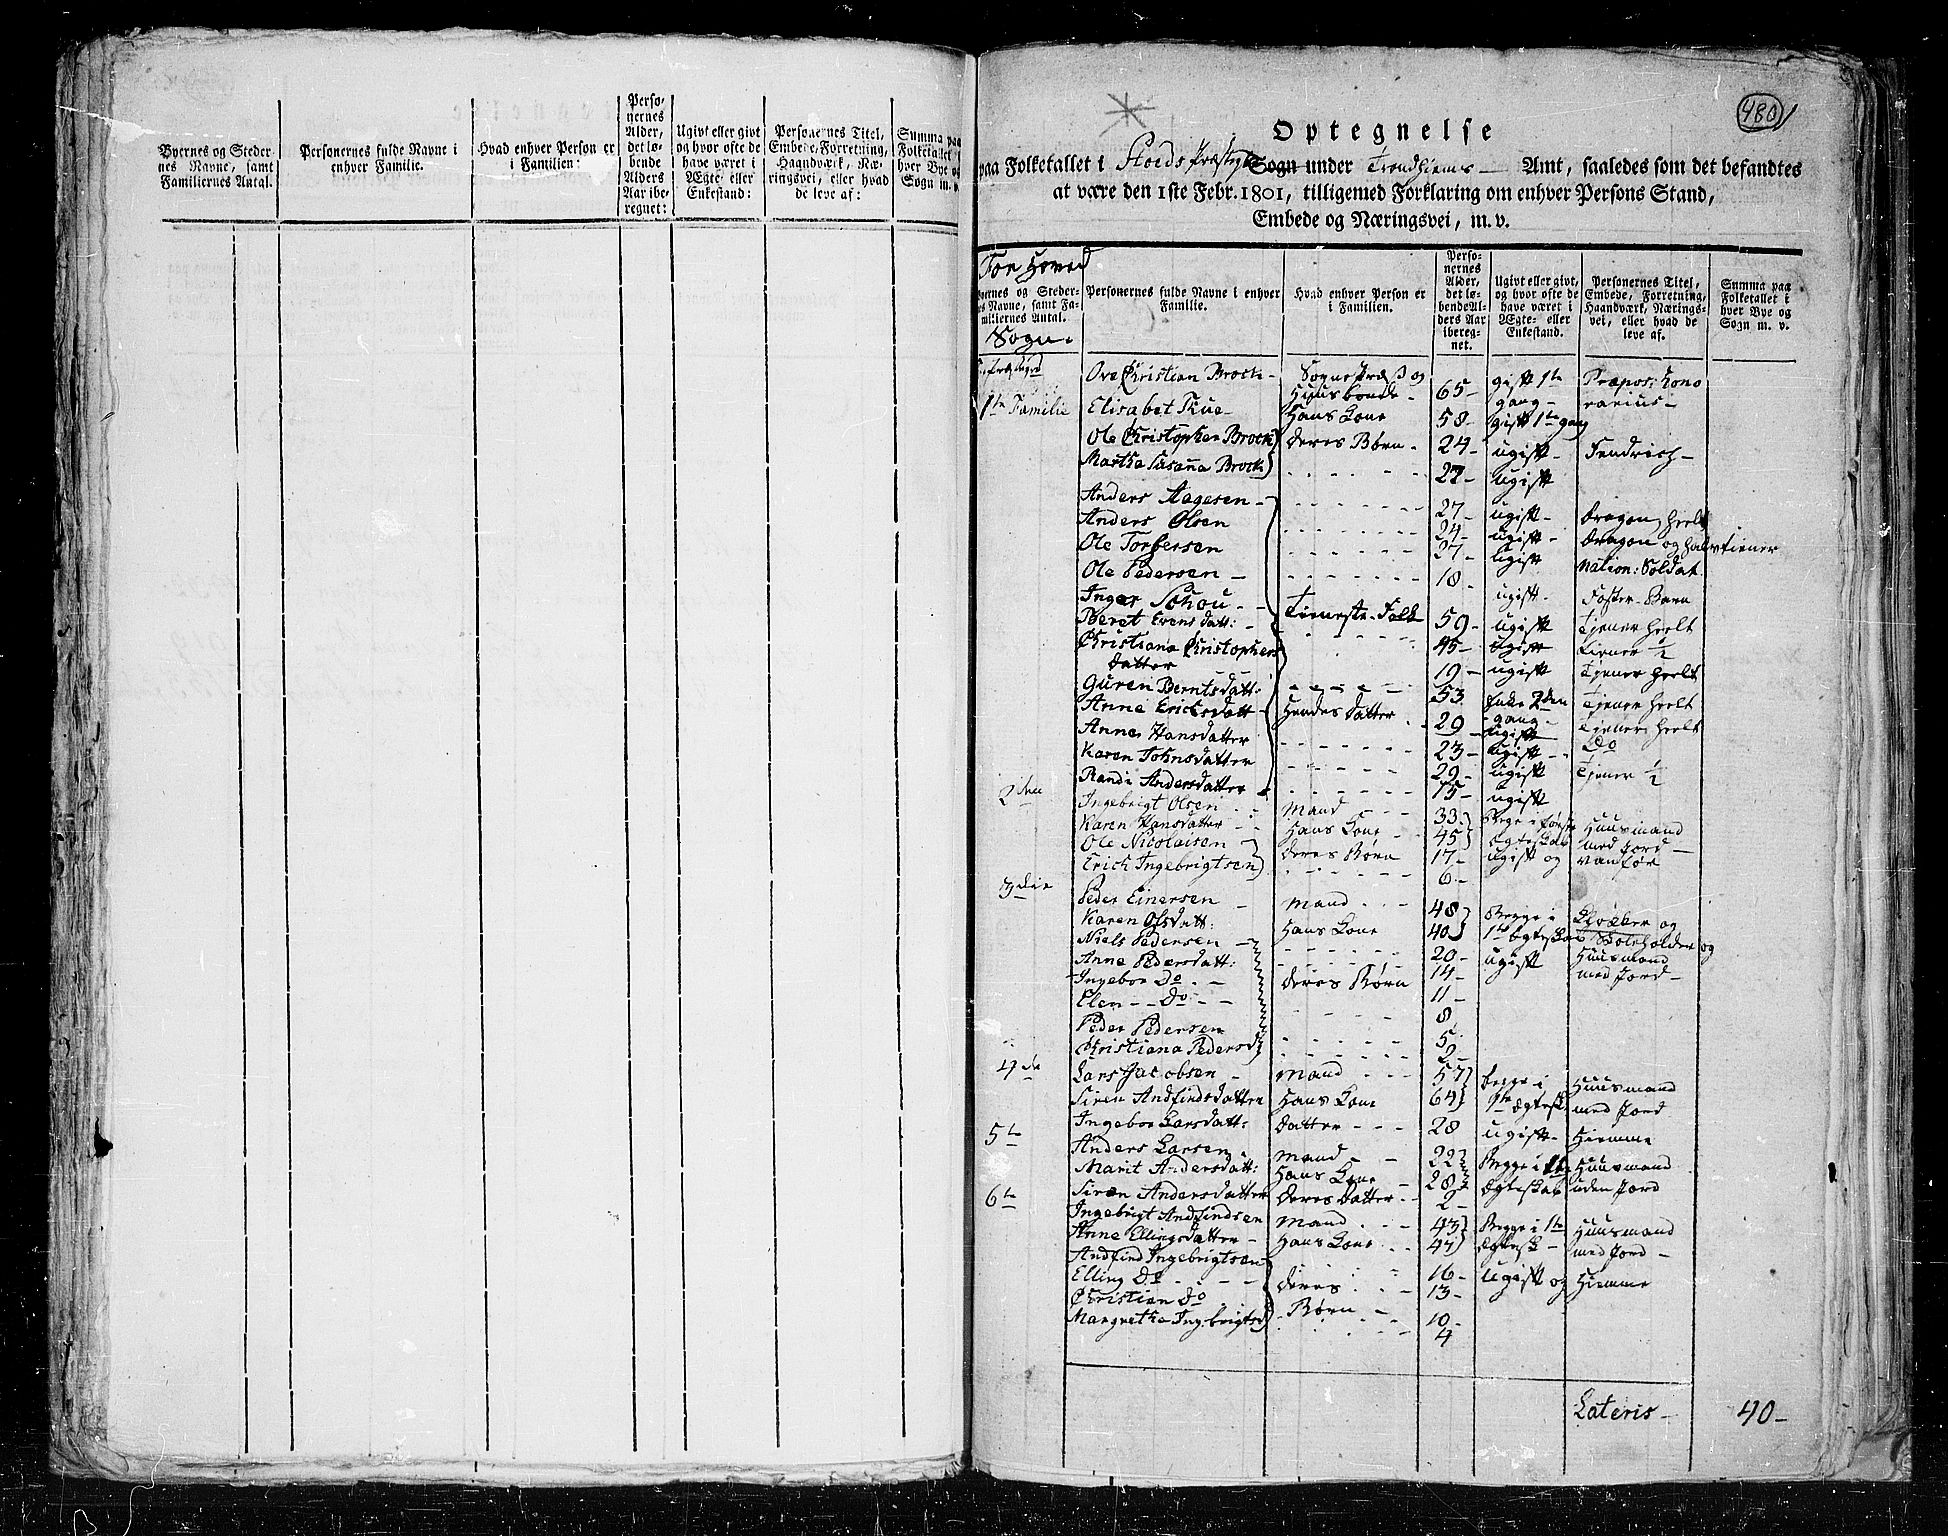 Byernes og Steder-
nes Navne, samt
Familiernes Antal.
Personernes fulde Navne i
enhver Familie.
Hvad enhver Person er
i Familien:
Perso-
nernes
Alder,
det lø-
bende
Alders
Aar ibe-
regnet:
Ugivt eller givt
og hvor ofte de
have været i
Ægte- eller
Enkestand:
Personernes Titel,
Embede, Forretning,
Haandværk, Næ-
ringsvei, eller hvad
de leve af:
Summa paa
Folketallet i
hver Bye og
Sogn m. v.
480
Optegnelse
paa Folketallet i Stods Præstegield Sogn under Trondhiems Amt, saaledes som det befandtes
at være den 1ste Febr. 1801, tilligemed Forklaring om enhver Persons Stand,
Embede og Næringsvei, m. v.
For Hoved
Byernes og Steder-
nes Navne, samt Fa-
miliernes Antal.
Sogn.
Personernes fulde Navne i enhver
Familie.
Hvad enhver Person er
i Familien.
Perso-
nernes
Alder,
det lø-
bende Al-
ders Aar
iberegn-
net.
Ugivt eller givt,
og hvor ofte de
have været i
Ægte- eller
Enkestand.
Personernes Titel,
Embede, Forretning,
Haandværk, Nærings-
vei, eller hvad de
leve af.
Summa paa
Folketallet i
hver Bye og
Sogn m. v.
Ove Christian Brock - Sognepræst og Huusbonde - 65 - gift 1te gang - Præpos: honorarius -
1te Familie Elisabet True - Hans Kone 58 - gift 1te gang
Ole Christopher Brock deres Børn - 24 - ugift - Fendrich -
Martha Susanna Brock 22 - ugift
Anders Aagesen - 27 - ugift - Dragon, heelt
Anders Olsen 24 - ugift - Dragon og halvtiener
Ole Torbersen 27 - ugift Nation: Soldat
Ole Pedersen - 18 - ugift - Foster-Barn
Inger Schou - Tieneste-Folk 59 - ugift Tjener heelt
Beret Evensdatt: 45 - ugift Tiener 1/2
Christiana Christophers
datter 19 - ugift Tjener heelt
Guren Berntsdatt: 53 - Enke 2den gang - Tjener heelt
Anne Ericksdatt Hendes datter 29 - ugift Tjener heelt
Anne Hansdatter 23 - ugift do
Karen Johnsdatter 29 - ugift Tjener 1/2
Randi Andersdatter 15 - ugift
2den Ingebrigt Olsen Mand 33 Begge i første Huusmand
Karen Hansdatter Hans Kone 45 ægteskab med Jord -
Ole Nicolaisen deres Børn 17 - ugift og vanfør
Erich Ingebrigtsen 6 -
3die Peder Einersen - Mand 48 Begge i Skrædder og
Karen Olsdatt: Hans Kone 40 1te ægteskab Skoleholder og
Niels Pedersen - 20 - ugift Huusmand
Anne Pedersdatt: 14 - med Jord -
Ingebor do - deres Børn 11 -
Elen - do - 8
Peder Pedersen 5
Christiana Pedersd 2 -
4de Lars Jacobsen - Mand 57 begge i Huusmand
Siren Andfindsdatter Hans Kone 64 1te ægtesk med Jord
Ingebor Larsdatt: datter - 28 ugift - Hiemme
5te Anders Larsen Mand 22 Begge i 1te Huusmand
Marit Andersdatt: Hans Kone 28 ægteskab uden Jord
Siren Andersdatter deres datter 2 -
6te Ingebrigt Andfindsen Mand 43 Begge i 1te Huusmand
Anne Ellingsdatter - Hans Kone 47 ægtesk - med Jord -
Andfind Ingebrigtsen 16 - ugift og Hiemme
Elling do deres 13 -
Christian do Børn - 10 -
Margretha Ingebrigtsd 4
Lateris - 40 -